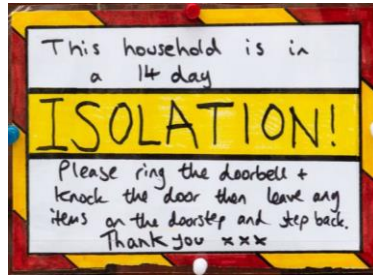 This household is in
a 14 day
ISOLATION!
Please ring the doorbell +
knock the door then leave any
items on the doorstep and step back.
Thank you xxx